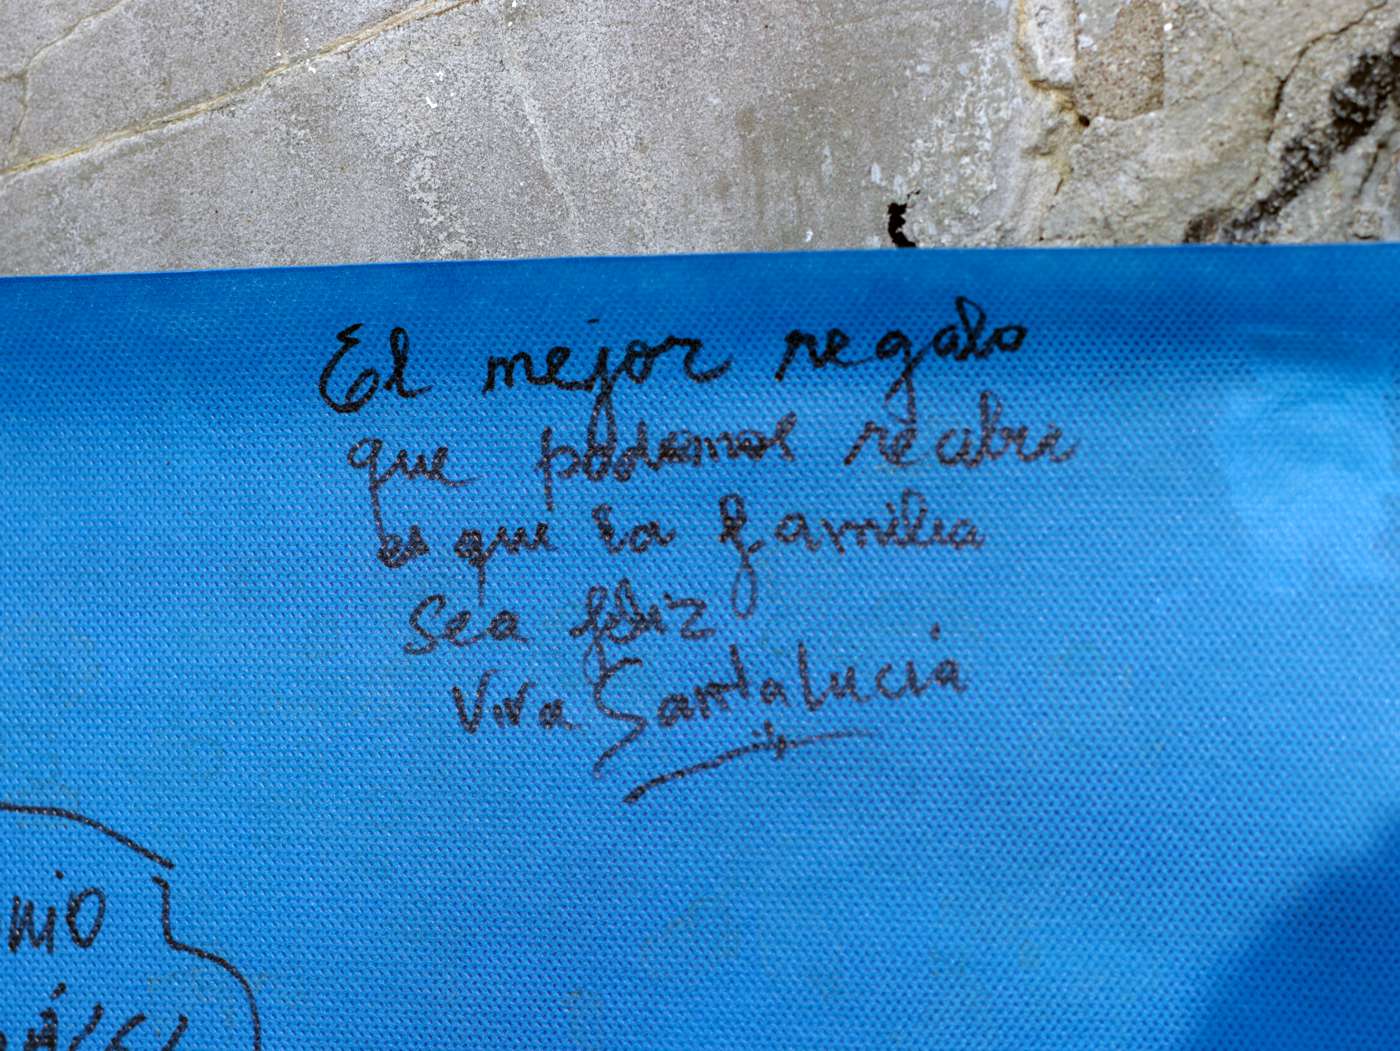 El mejor regalo
que podemos recibir
es que la familia
sea feliz
Viva Santa Lucía